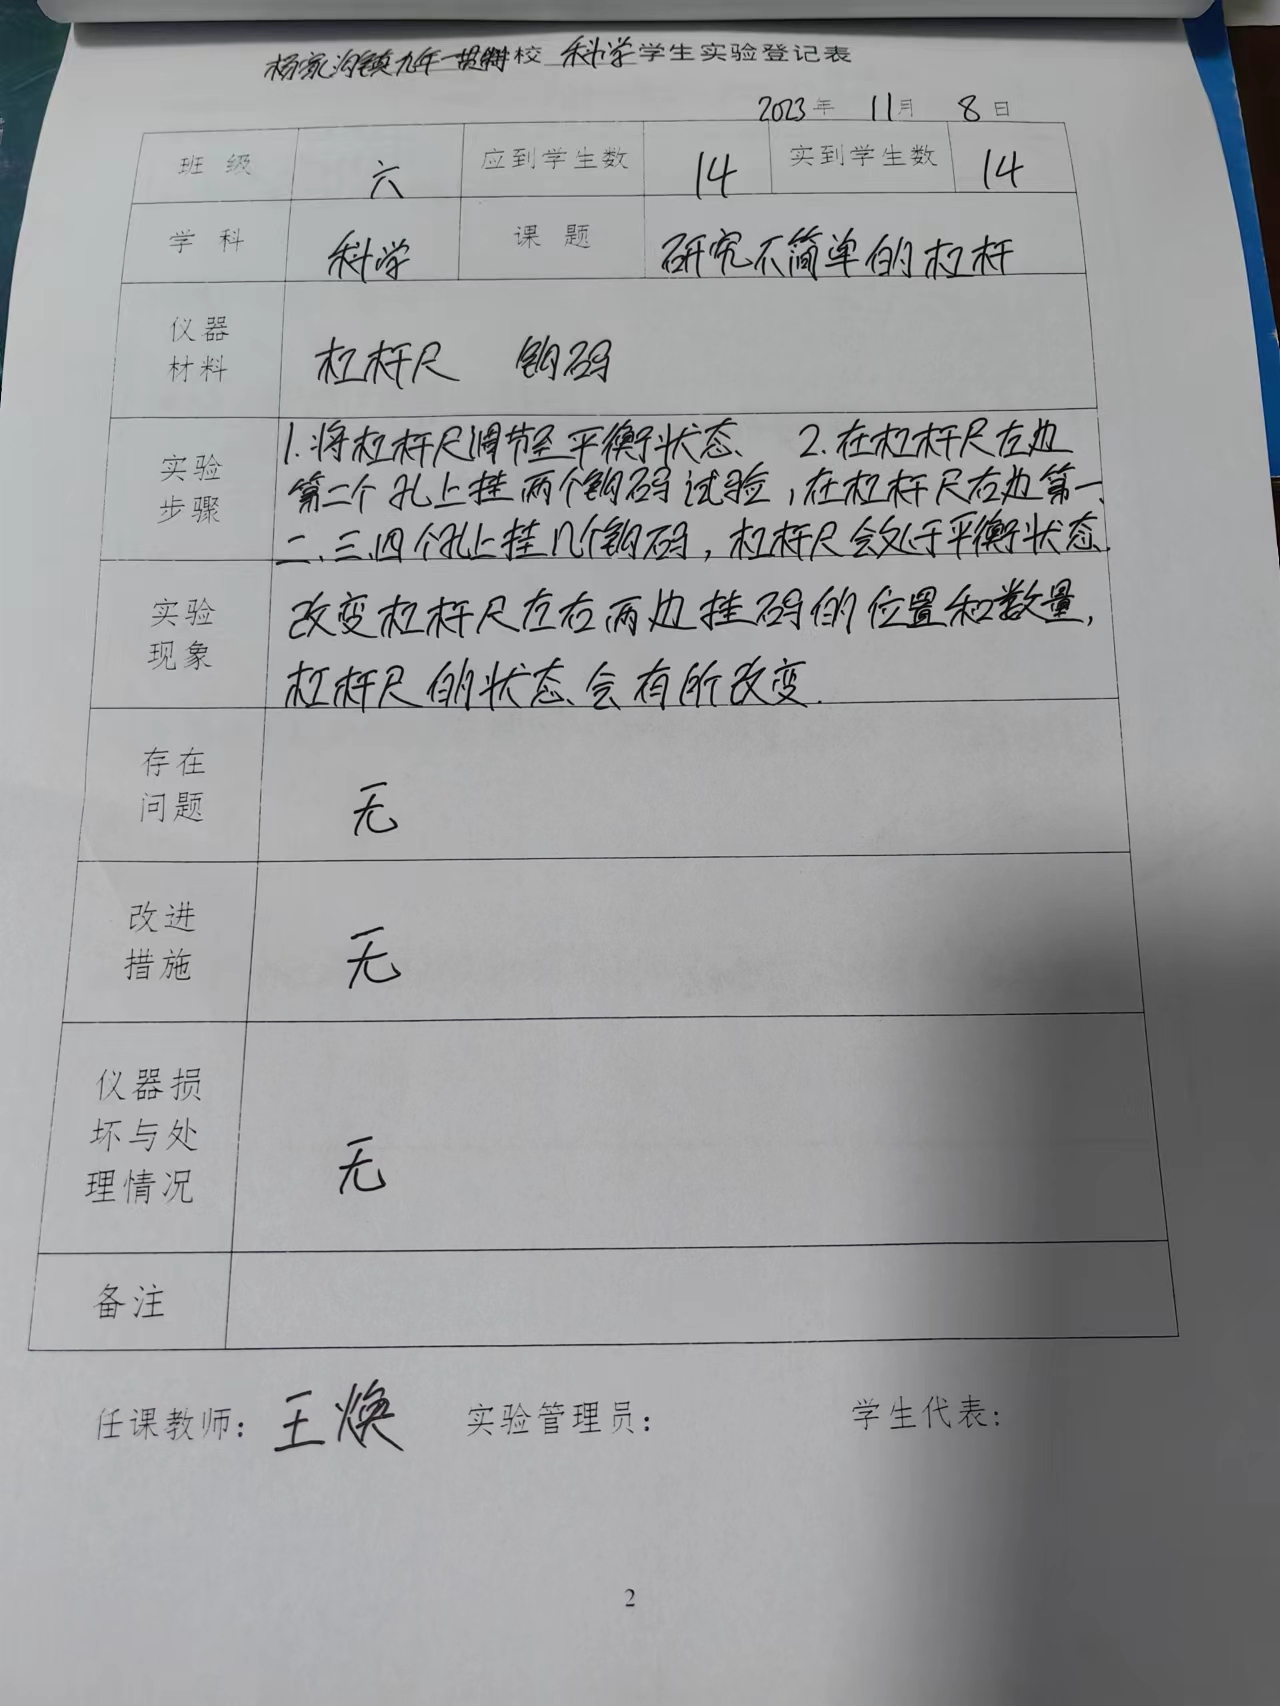 杨家沟镇九年一贯制校 科学 学生实验登记表
2023年 11月 8日
班 级 六 应到学生数 14 实到学生数 14
学 科 科学 课 题 研究不简单的杠杆
仪器
材料
杠杆尺 钩码
实验
步骤
1.将杠杆尺调节至平衡状态、 2.在杠杆尺左边
第二个孔上挂两个钩码试验,在杠杆尺右边第一、
二、三、四个孔上挂几个钩码,杠杆尺会处于平衡状态.
实验
现象
改变杠杆尺左右两边挂码的位置和数量,
杠杆尺的状态会有所改变.
存在
问题
无
改进
措施
无
仪器损
坏与处
理情况
无
备注
任课教师: 王焕 实验管理员: 学生代表:
2